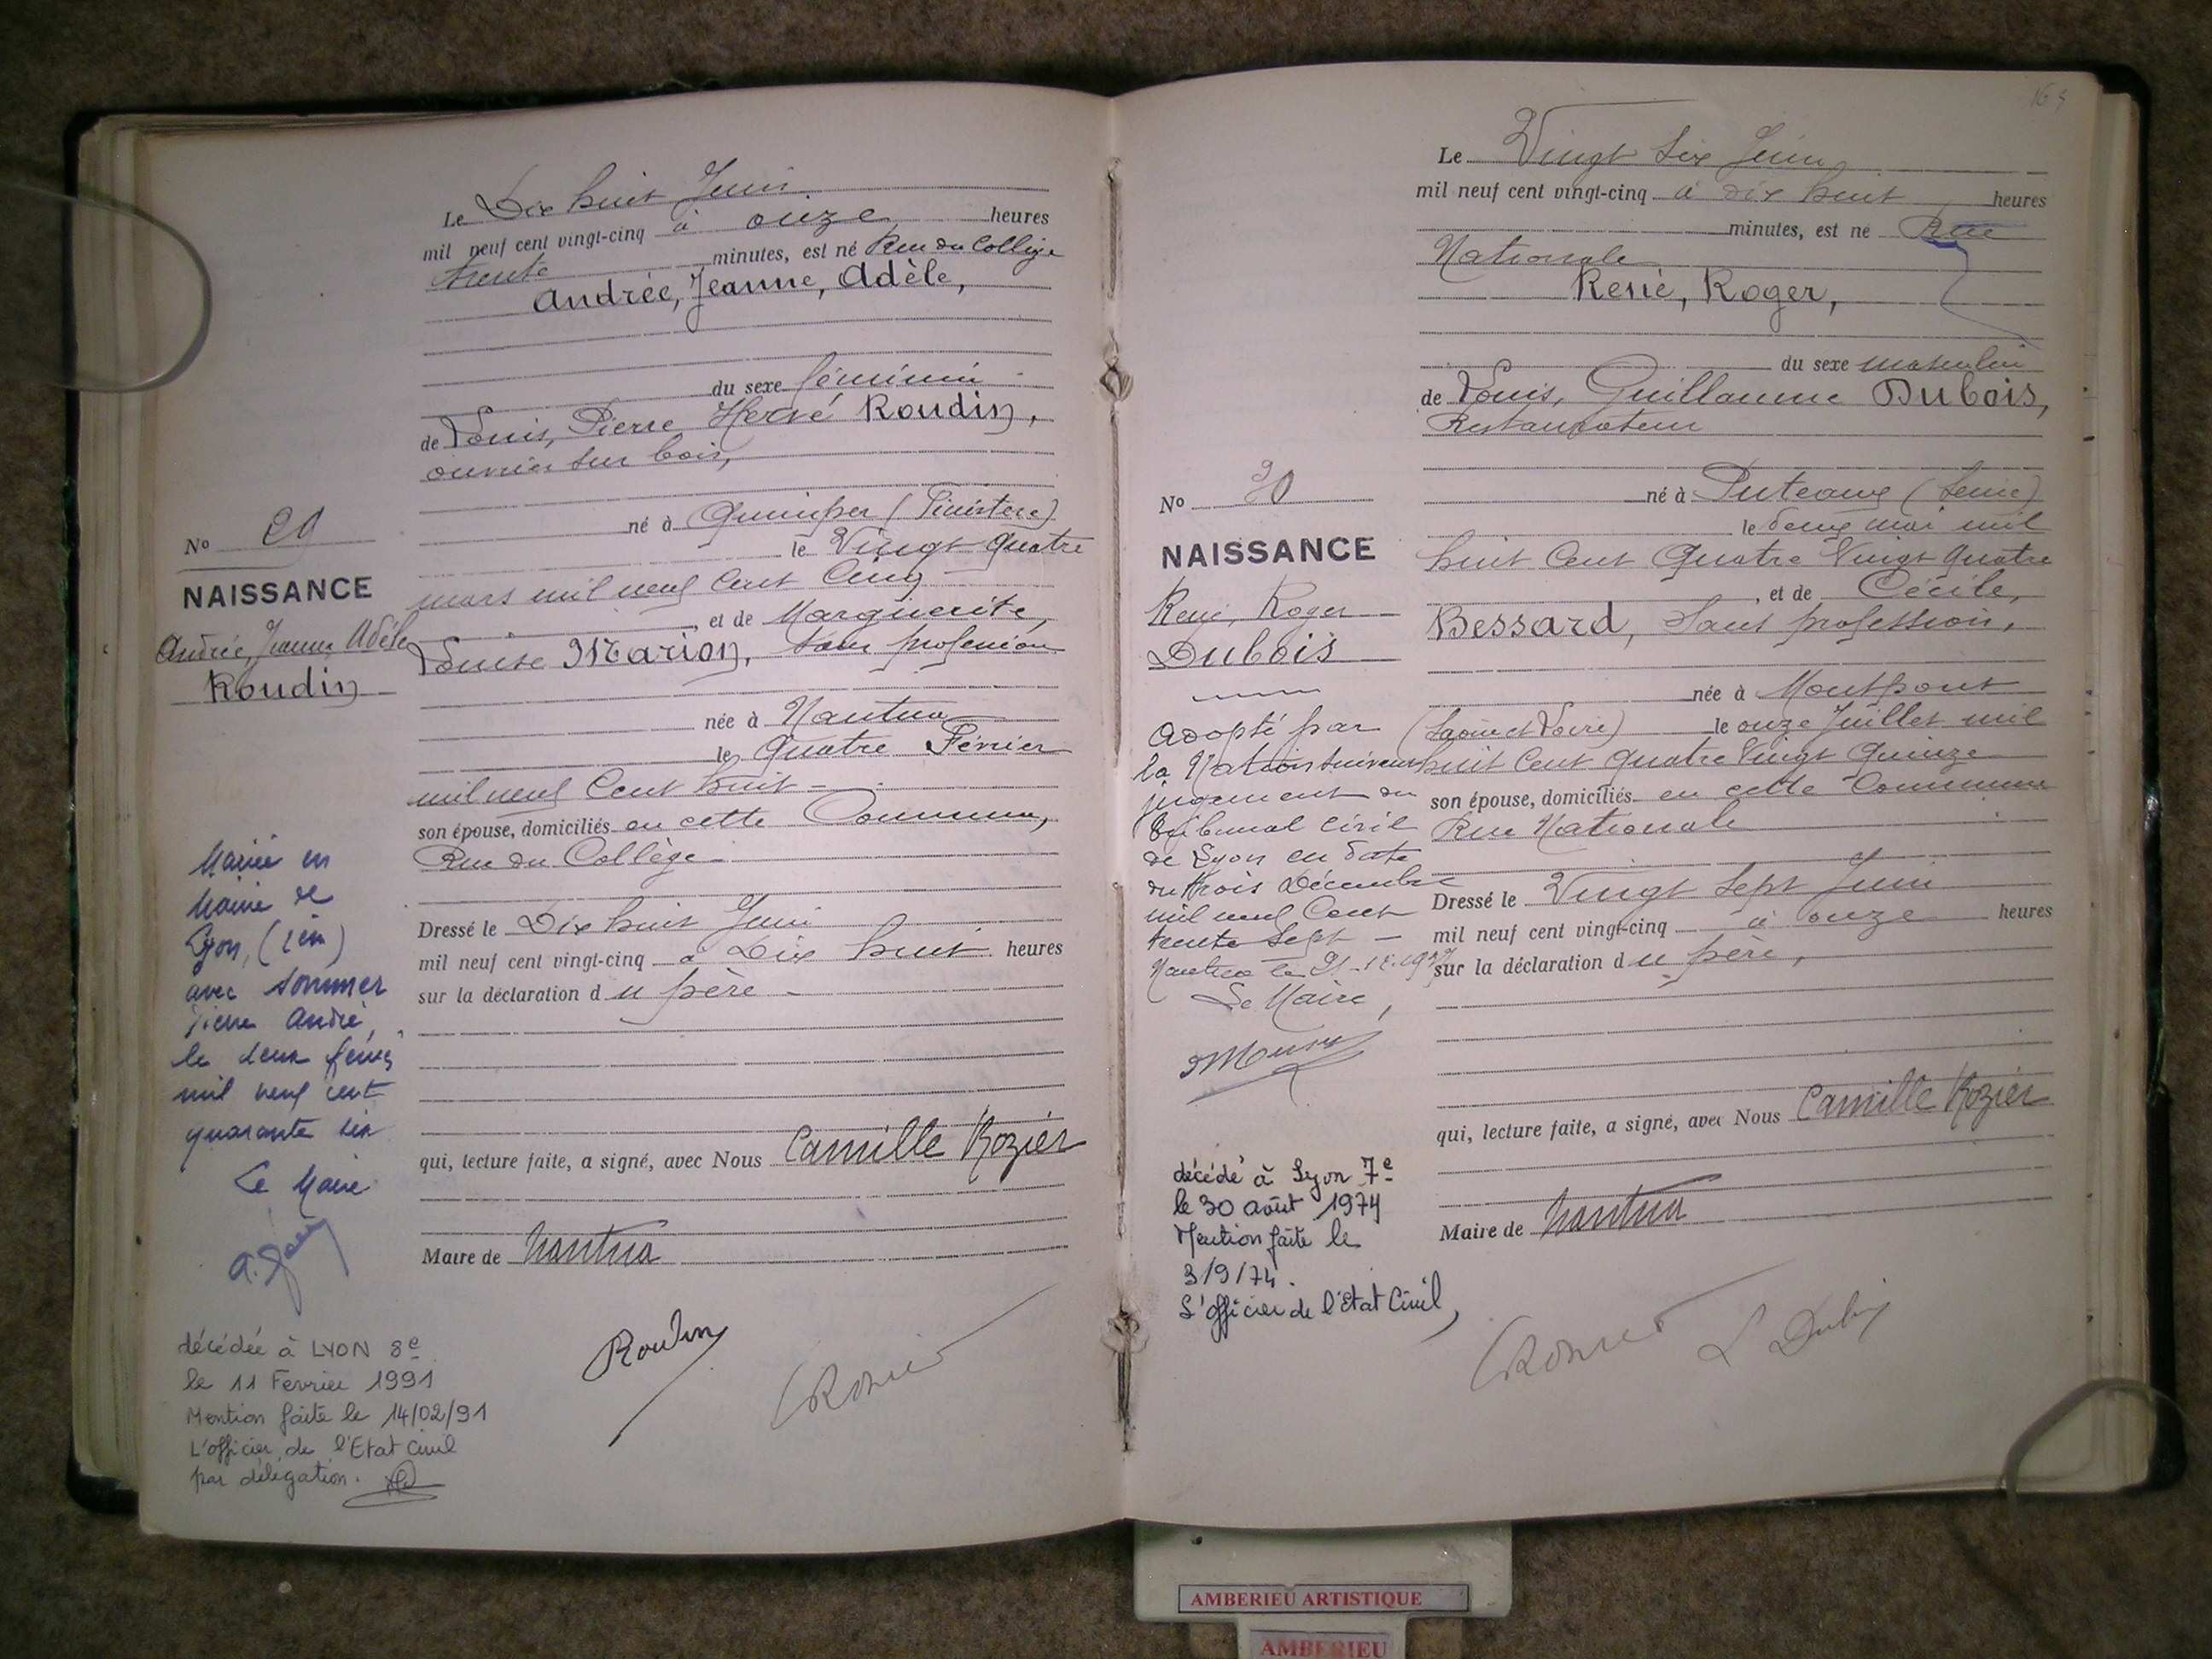 Le Dix huit Juin
mil neuf cent vingt-cinq à onze heures
trente minutes, est né Rue du Collège
Andrée, Jeanne, Adèle,
du sexe féminin
de Louis, Pierre Hervé Roudin,
ouvrier sur bois,
né à Quimper (Finistère)
le Vingt quatre
mars mil neuf Cent Cinq
, et de Marguerite,
Louise Marion, sans profession
née à Nantua
le Quatre Février
mil neuf Cent huit
son épouse, domiciliés en cette Commune,
Rue du Collège
Dressé le Dix huit Juin
mil neuf cent vingt-cinq à Dix huit heures
sur la déclaration du père
qui, lecture faite, a signé, avec Nous Camille Rozier
Maire de Nantua
Roudin
No 29
NAISSANCE
Andrée, Jeanne Adèle
Roudin
Mariée en
Mairie de
Lyon,
avec Sommer
Pierre André,
le deux
mil neuf cent
quarante six
Le Maire
décédée à LYON 8e
le 11 Février 1991
Mention faite le 14/02/91
L'officier de l'Etat Civil
par délégation.
Le Vingt six Juin
mil neuf cent vingt-cinq à dix huit heures
minutes, est né Rue
Nationale
René, Roger,
du sexe masculin
de Louis, Guillaume Dubois,
Restaurateur
né à Puteaux (Seine)
le deux mai mil
huit Cent Quatre Vingt Quatre
, et de Cécile,
Bessard, Sans profession,
née à Montpont
(Saône et Loire) le onze Juillet mil
huit Cent Quatre Vingt Quinze
son épouse, domiciliés en cette Commune
Rue Nationale
Dressé le Vingt Sept Juin
mil neuf cent vingt-cinq à onze heures
sur la déclaration du père,
qui, lecture faite, a signé, avec Nous Camille Rozier
Maire de Nantua
L Dubois
No 30
NAISSANCE
René, Roger
Dubois
Adopté par
la Nation suivant
jugement du
tribunal Civil
de Lyon en date
du trois Décembre
mil neuf Cent
trente Sept
Nantua le
Le Maire,
décédé à Lyon 7e
le 30 août 1974
Mention faite le
3/9/74.
L'officier de l'Etat Civil,
AMBERIEU ARTISTIQUE
AMBERIEU